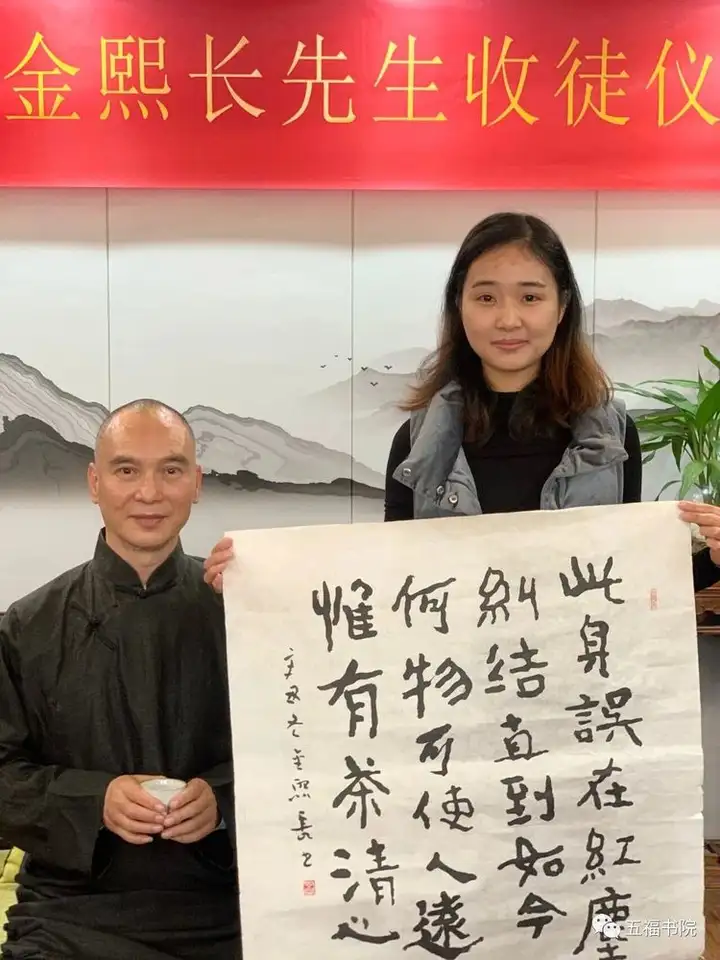 金熙长先生收徒仪
此身誤在紅塵
糾結直到如今
何物可使人遠
惟有茶清心
辛丑冬金熙長书
五福书院